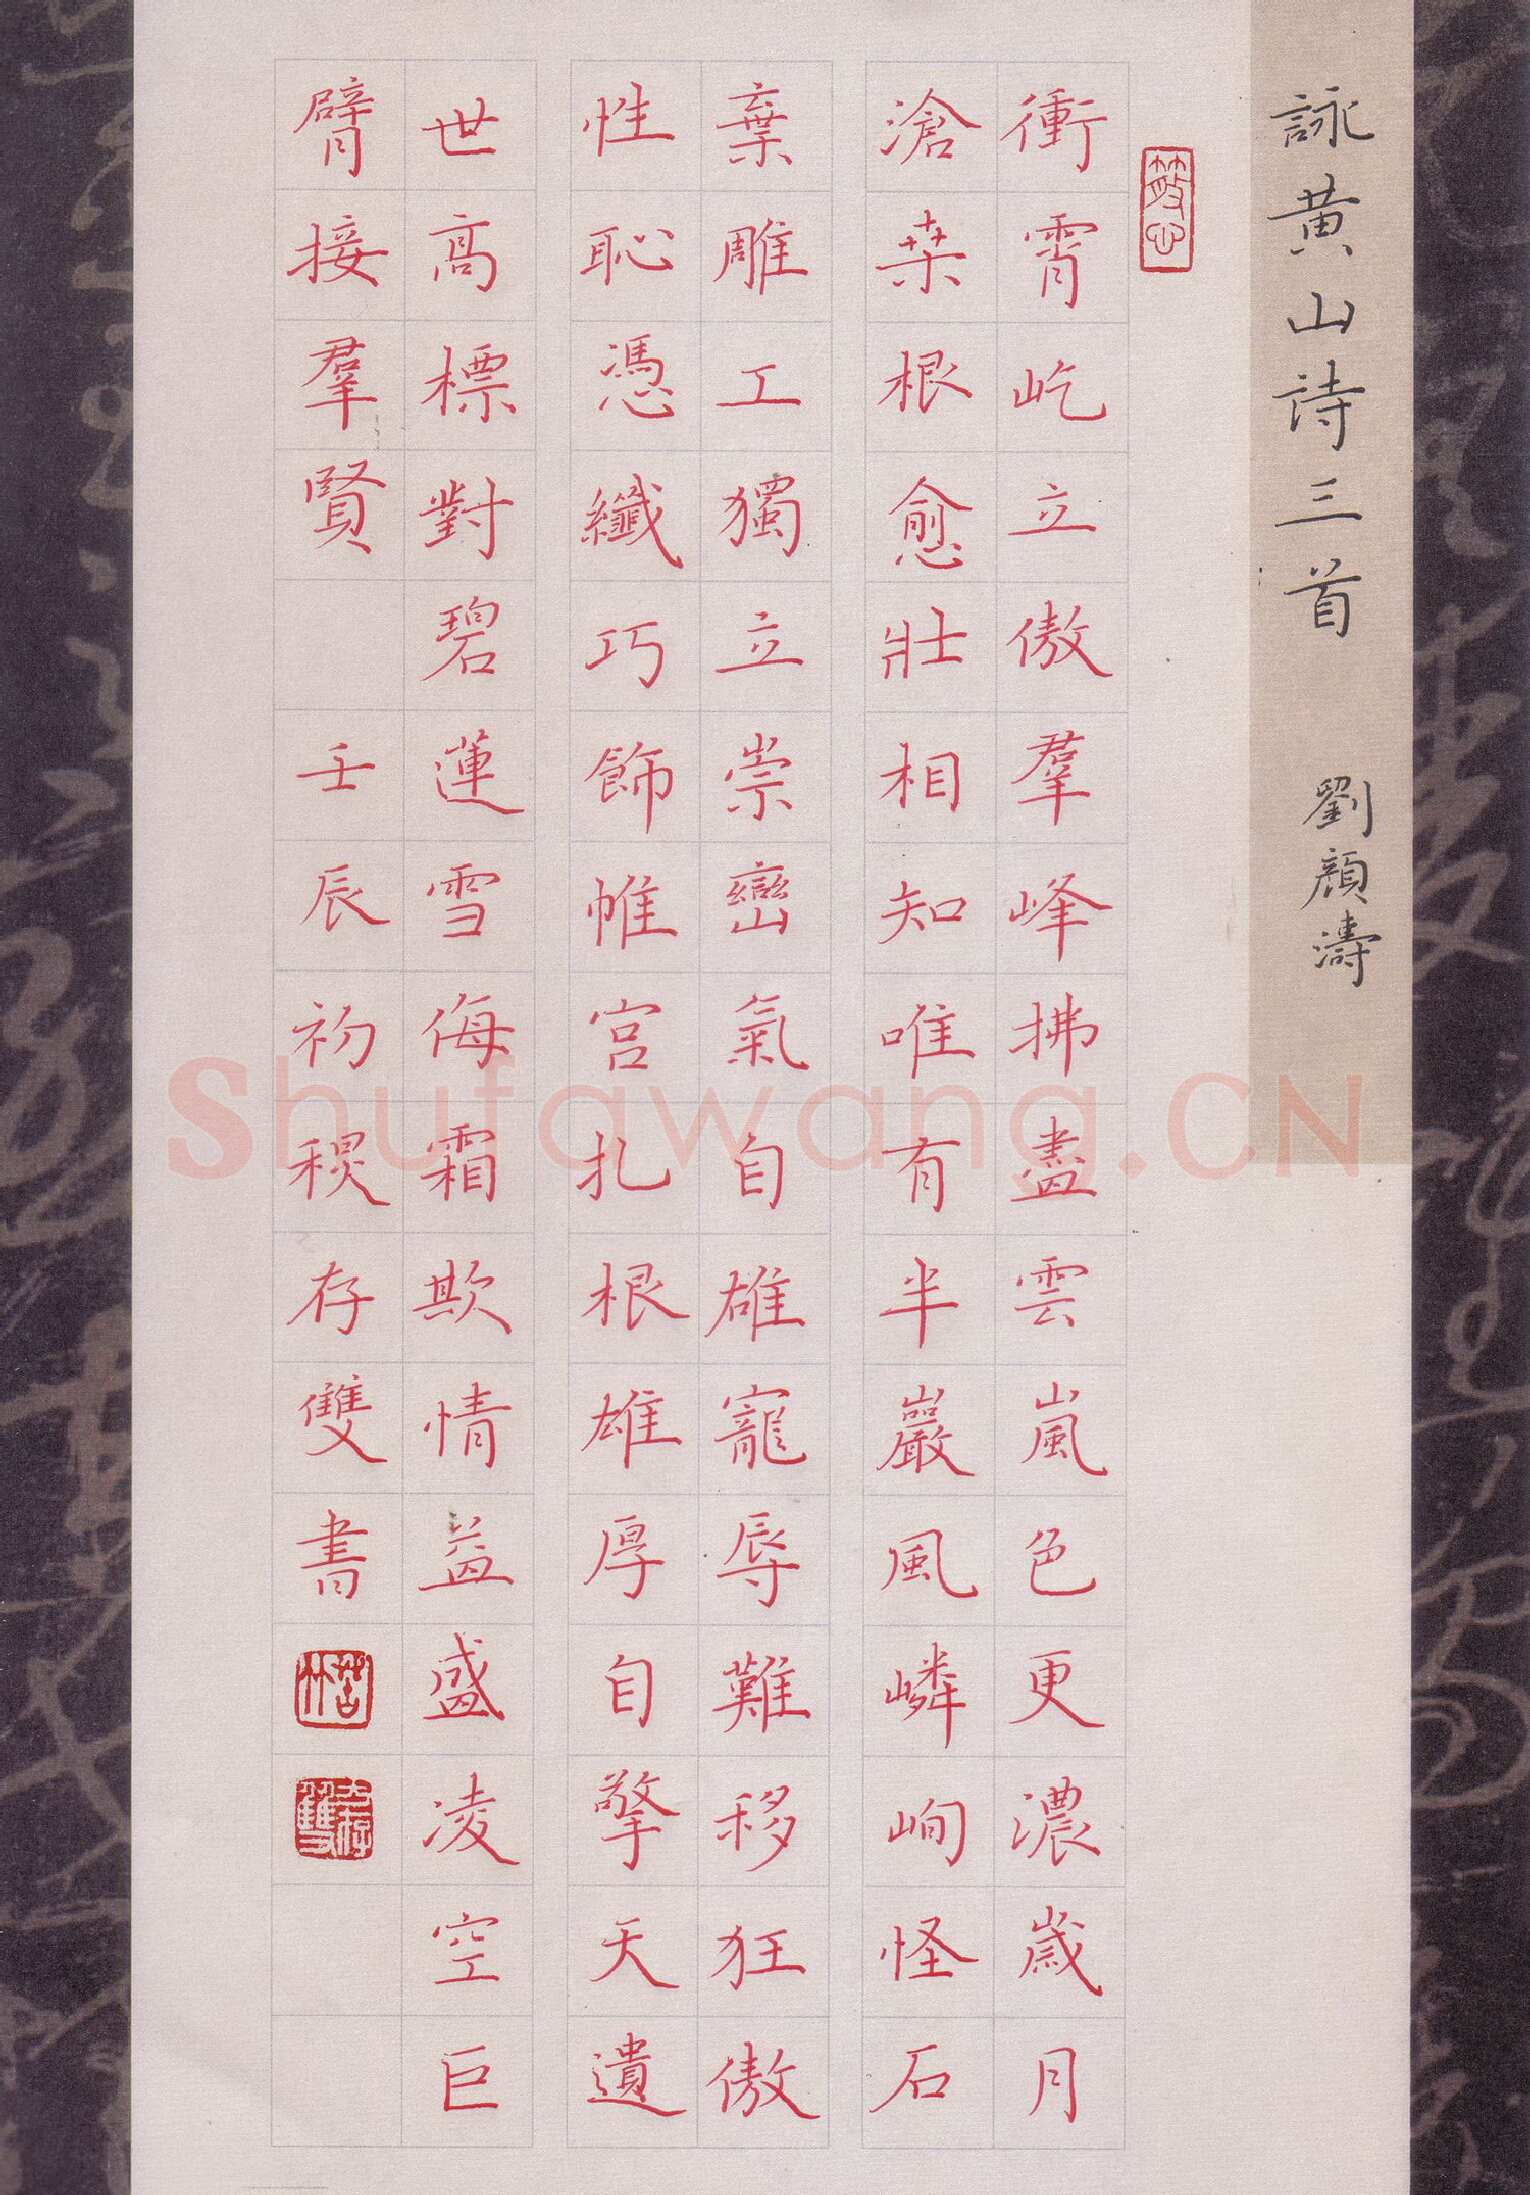 詠黄山詩三首 劉顔濤
衝霄屹立傲羣峰拂盡雲嵐色更濃歲月
滄桒根愈壯相知唯有半巖風嶙峋怪石
棄雕工獨立崇巒氣自雄寵辱難移狂傲
性恥憑纖巧飾帷宮扎根雄厚自擎天遺
世高標對碧蓮雪侮霜欺情益盛凌空巨
臂接羣賢 壬辰初稷存雙書
Shufawang.CN